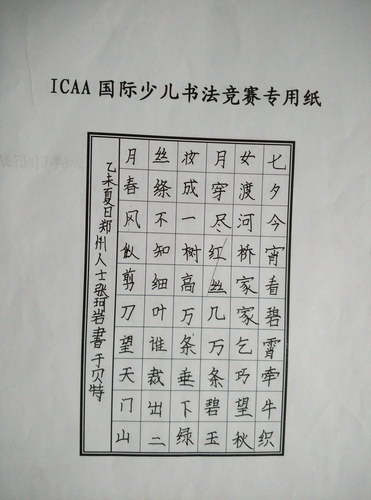 ICAA国际少儿书法竞赛专用纸
七夕今宵看碧霄牵牛织
女渡河桥家家乞巧望秋
月穿尽红丝几万条碧玉
妆成一树高万条垂下绿
丝绦不知细叶谁裁出二
月春风似剪刀望天门山
乙未夏日郑州人士张珂岩書于贝特